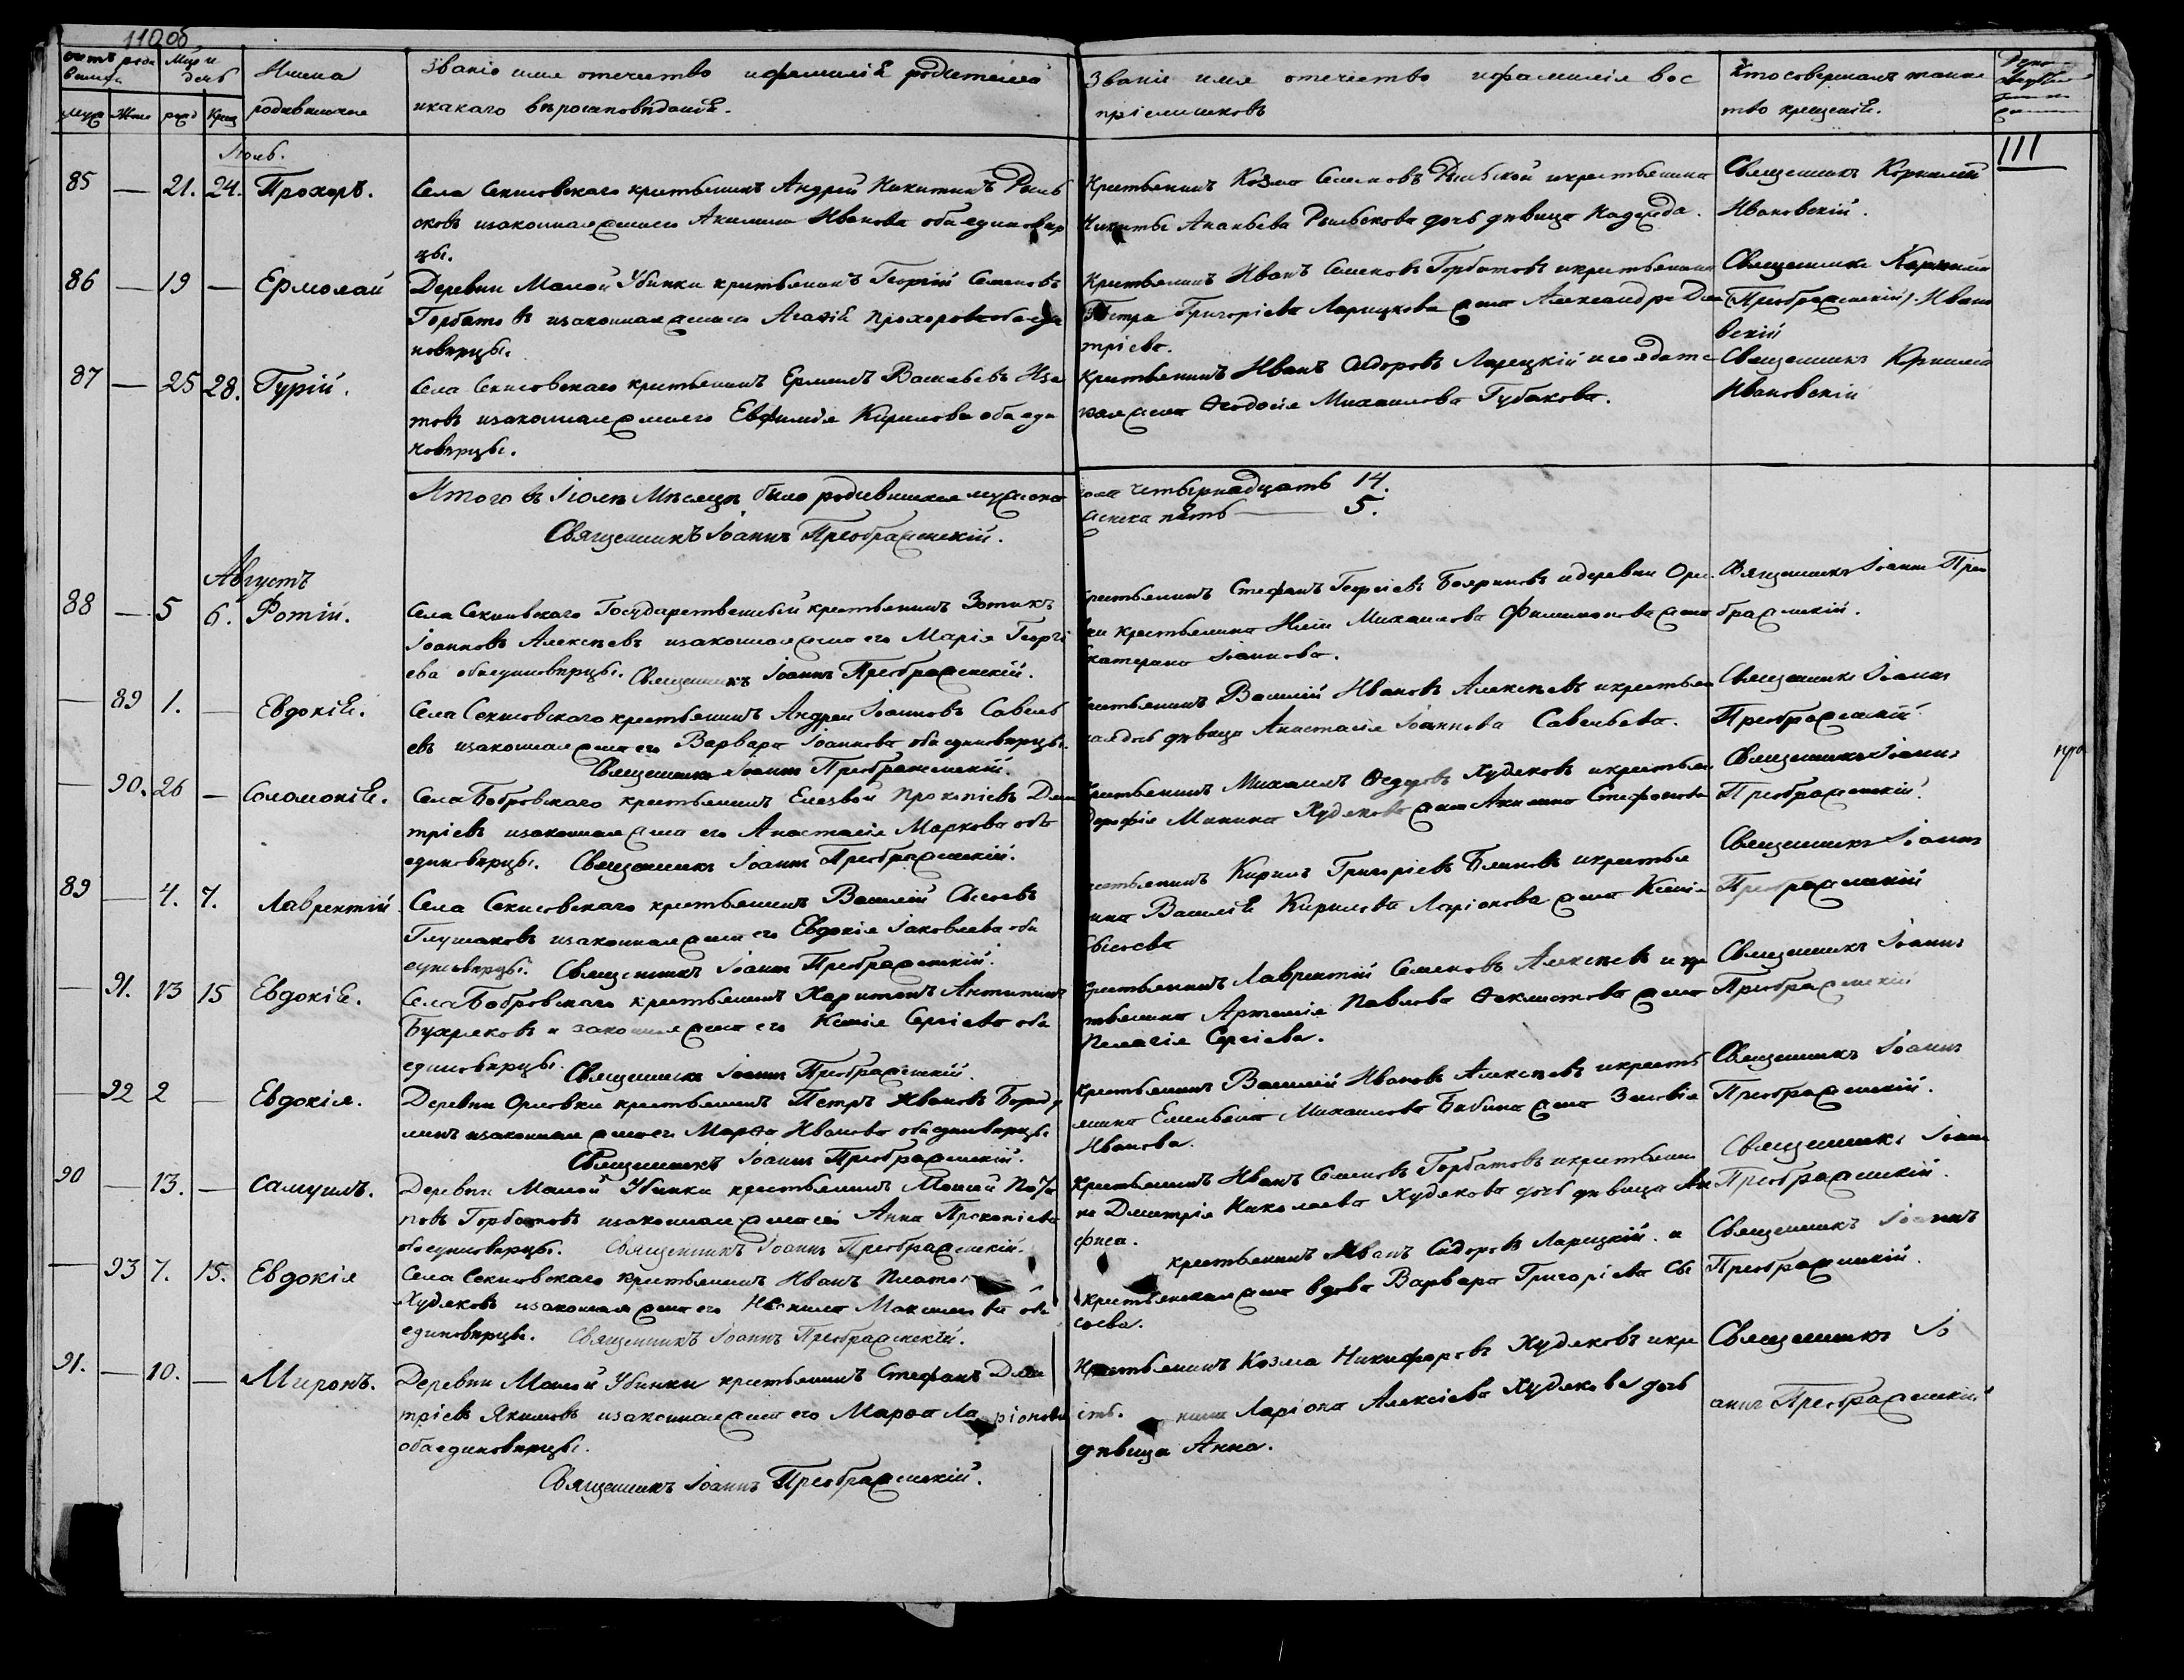 110об
счетъ родившихся
Мцъ и день
Имена родившихся
Званіе имя отечество и фамилія родителей
и какаго вѣроисповѣданія.
Званіе имя отечество и фамилія вос
пріемниковъ
Кто совершалъ таинс
тво крещенія.
муж Жен рожд Крещ
111
Іюль.
85 — 21. 24. Прохоръ.
Села Секисовскаго крестьянинъ Андрей Никитинъ Рыль
сковъ и законная жена его Акилина Иванова оба единовѣр
цы.
Крестьянинъ Козма Семеновъ Рыльской и крестьянина
Никиты Ананьева Рыльскова дочь дѣвица Надежда.
Священникъ Корнилій
Ивановскій.
86 — 19 — Ермолай
Деревни Малой Убинки крестьянинъ Георгій Семеновъ
Горбатовъ и законная жена его Агафія Прохорова оба еди
новѣрцы.
Крестьянинъ Иванъ Семеновъ Горбатовъ и крестьянина
Петра Григоріева Ларицкова жена Александра Дми
тріева.
Священникъ Корнилій
(Преображенскій) Ивано
вскій
87 — 25 28. Гурій.
Села Секисовскаго крестьянинъ Ермилъ Васильевъ Иза
товъ и законная жена его Евфимія Кирилова оба еди
новѣрцы.
Крестьянинъ Иванъ Сидоровъ Ларецкій и солдатс
кая жена Ѳеодосія Михаилова Губакова.
Священникъ Корнилій
Ивановскій
Итого въ Іюлѣ Мѣсяцѣ было родившихся мужска
пола четырнадцать 14.
женска пять — 5.
Священникъ Іоаннъ Преображенскій.
Августъ
88 — 5 6. Фотій.
Села Секисовскаго Государственный крестьянинъ Зотикъ
Іоанновъ Алексѣевъ и законная жена его Марія Георгі
ева оба единовѣрцы. Священникъ Іоаннъ Преображенскій.
Крестьянинъ Стефанъ Георгіевъ Бояриновъ и деревни Орло
вки крестьянина Иліи Михаилова Филимонова жена
Екатерина Іоаннова.
Священникъ Іоаннъ Прео
браженскій.
— 89 1. — Евдокія.
Села Секисовскаго крестьянинъ Андрей Іоанновъ Савель
евъ и законная жена его Варвара Іоаннова оба единовѣрцы.
Священникъ Іоаннъ Преображенскій.
Крестьянинъ Василій Ивановъ Алексѣевъ и крестьян
ская дочь дѣвица Анастасія Іоаннова Савельева.
Священникъ Іоаннъ
Преображенскій.
— 90. 26 — Соломонія.
Села Бобровскаго крестьянинъ Елезвой Прокопіевъ Дми
тріевъ и законная жена его Анастасія Маркова оба
единовѣрцы. Священникъ Іоаннъ Преображенскій.
Крестьянинъ Михаилъ Ѳедоровъ Худяковъ и крестьян
Дорофія Минина Худякова жена Акилина Стефанова
Священникъ Іоаннъ
Преображенскій.
89 — 4. 7. Лаврентій
Села Секисовскаго крестьянинъ Василій Сысоевъ
Глушаковъ и законная жена его Евдокія Іаковлева оба
единовѣрцы. Священникъ Іоаннъ Преображенскій.
Крестьянинъ Кирилъ Григоріевъ Блиновъ и крестья
нина Василія Кирилова Ларіонова жена Ксенія
Сысоева
Священникъ Іоаннъ
Преображенскій
— 91. 13 15 Евдокія.
Села Бобровскаго крестьянинъ Харитонъ Антипинъ
Бухряковъ и законная жена его Ксенія Сергіева оба
единовѣрцы. Священникъ Іоаннъ Преображенскій.
Крестьянинъ Лаврентій Семеновъ Алексѣевъ и кре
тьянина Артемія Павлова Ѳеклистова жена
Пелагія Сергіева.
Священникъ Іоаннъ
Преображенскій
— 92 2 — Евдокія.
Деревни Орловки крестьянинъ Петръ Ивановъ Бороду
линъ и законная жена его Марѳа Иванова оба единовѣрцы
Священникъ Іоаннъ Преображенскій.
Крестьянинъ Василій Ивановъ Алексѣевъ и кресть
янина Емельяна Михаилова Бабина жена Зиновія
Иванова.
Священникъ Іоаннъ
Преображенскій.
90 — 13. — Самуилъ.
Деревни Малой Убинки крестьянинъ Моисей Пота
повъ Горбатовъ и законная жена его Анна Прокопіева
оба единовѣрцы. Священникъ Іоаннъ Преображенскій.
Крестьянинъ Иванъ Семеновъ Горбатовъ и крестьяни
на Дмитрія Николаева Худякова дочь дѣвица Ан
фиса.
Священникъ Іоаннъ
Преображенскій.
— 93 7. 15. Евдокія
Села Секисовскаго крестьянинъ Иванъ Платон
Худяковъ и законная жена его Неонила Максимова оба
единовѣрцы. Священникъ Іоаннъ Преображенскій.
крестьянинъ Иванъ Сидоровъ Ларицкій и
крестьянская жена вдова Варвара Григоріева Сы
соева.
Священникъ Іоаннъ
Преображенскій.
91. — 10. — Миронъ.
Деревни Малой Убинки крестьянинъ Стефанъ Дми
тріевъ Якимовъ и законная жена его Марѳа Ларіонова
оба единовѣрцы.
Священникъ Іоаннъ Преображенскій.
Крестьянинъ Козма Никифоровъ Худяковъ и кре
стья нина Ларіона Алексіева Худякова дочь
дѣвица Анна.
Священникъ Іо
аннъ Преображенскій